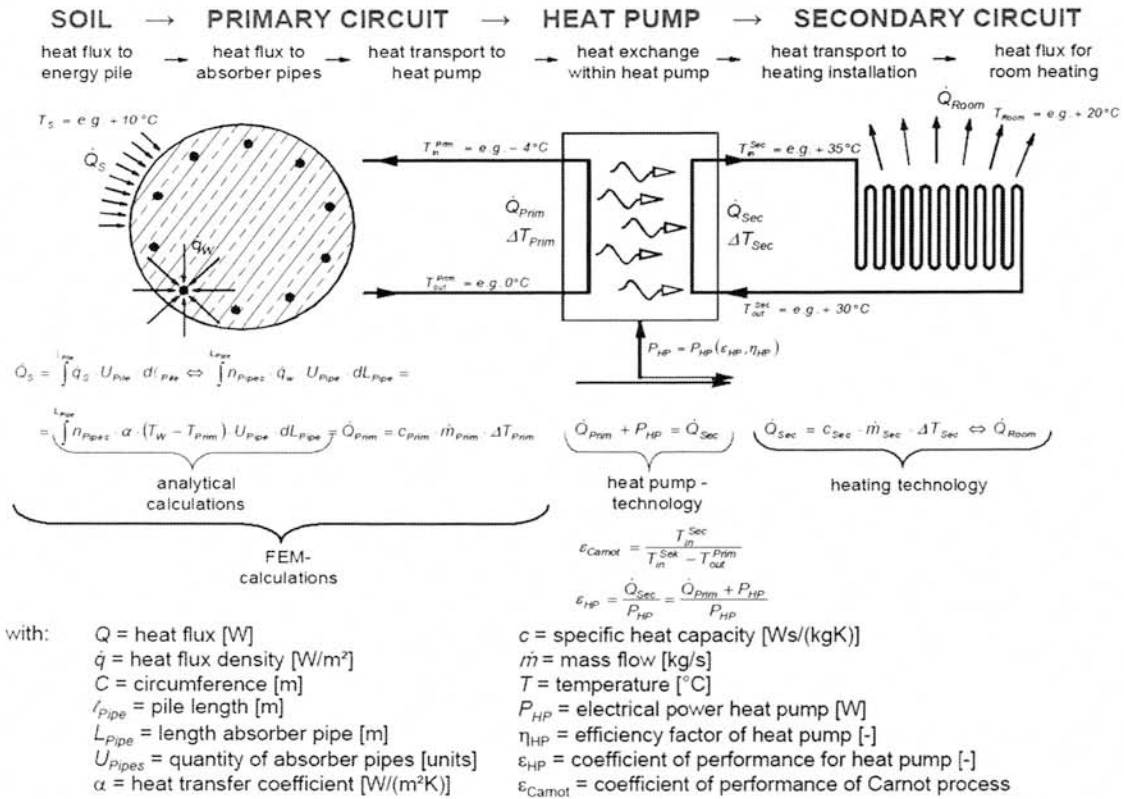 SOIL → PRIMARY CIRCUIT → HEAT PUMP → SECONDARY CIRCUIT
heat flux to energy pile → heat flux to absorber pipes → heat transport to heat pump → heat exchange within heat pump → heat transport to heating installation → heat flux for room heating
T_S = e.g. +10°C
Q̇_S
q̇_W
T_in^Prim = e.g. – 4°C
Q̇_Prim
ΔT_Prim
T_out^Prim = e.g. 0°C
T_in^Sec = e.g. + 35°C
Q̇_Sec
ΔT_Sec
T_out^Sec = e.g. + 30°C
Q̇_Room
T_Room = e.g. + 20°C
P_HP = P_HP(ε_HP, η_HP)
Q̇_S = ∫ q̇_S · U_Pile · dℓ_Pile ⇔ ∫^L_Pipe n_Pipes · q̇_w · U_Pipe · dL_Pipe =
= ∫^L_Pipe n_Pipes · α · (T_W − T_Prim) · U_Pipe · dL_Pipe = Q̇_Prim = c_Prim · ṁ_Prim · ΔT_Prim
analytical
calculations
FEM-
calculations
Q̇_Prim + P_HP = Q̇_Sec
heat pump -
technology
Q̇_Sec = c_Sec · ṁ_Sec · ΔT_Sec ⇔ Q̇_Room
heating technology
ε_Carnot = T_in^Sec / (T_in^Sek − T_out^Prim)
ε_HP = Q̇_Sec / P_HP = (Q̇_Prim + P_HP) / P_HP
with:
Q = heat flux [W]
q̇ = heat flux density [W/m²]
C = circumference [m]
ℓ_Pipe = pile length [m]
L_Pipe = length absorber pipe [m]
U_Pipes = quantity of absorber pipes [units]
α = heat transfer coefficient [W/(m²K)]
c = specific heat capacity [Ws/(kgK)]
ṁ = mass flow [kg/s]
T = temperature [°C]
P_HP = electrical power heat pump [W]
η_HP = efficiency factor of heat pump [-]
ε_HP = coefficient of performance for heat pump [-]
ε_Carnot = coefficient of performance of Carnot process